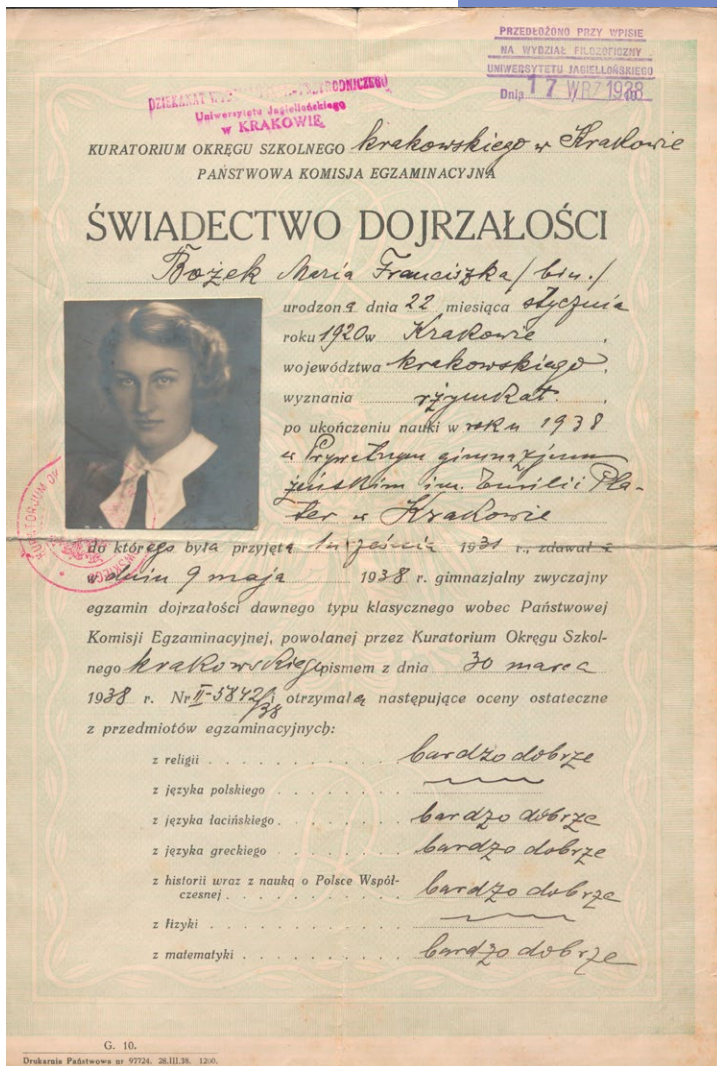 PRZEDŁOŻONO PRZY WPISIE
NA WYDZIAŁ FILOZOFICZNY
UNIWERSYTETU JAGIELLOŃSKIEGO
Dnia 17 WRZ 1938
DZIEKANAT
Uniwersytetu Jagiellońskiego
w KRAKOWIE
KURATORIUM OKRĘGU SZKOLNEGO krakowskiego w Krakowie
PAŃSTWOWA KOMISJA EGZAMINACYJNA
ŚWIADECTWO DOJRZAŁOŚCI
Bożek Maria Franciszka /bin./
urodzona dnia 22 miesiąca stycznia
roku 1920 w Krakowie,
województwa krakowskiego,
wyznania rzymkat.,
po ukończeniu nauki w roku 1938
w Prywatnym gimnazjum
żeńskim im. Emilii Pla-
ter w Krakowie
do którego była przyjęta 1931 r., zdawała
w dniu 9 maja 1938 r. gimnazjalny zwyczajny
egzamin dojrzałości dawnego typu klasycznego wobec Państwowej
Komisji Egzaminacyjnej, powołanej przez Kuratorium Okręgu Szkol-
nego krakowskiego pismem z dnia 30 marca
1938 r. Nr II-5842/38 i otrzymała następujące oceny ostateczne
z przedmiotów egzaminacyjnych:
z religii . . . . . . . . . . . bardzo dobrze
z języka polskiego . . . . . . . .
z języka łacińskiego . . . . . . . . bardzo dobrze
z języka greckiego . . . . . . . . bardzo dobrze
z historii wraz z nauką o Polsce Współ-
czesnej . . . . . . . . . . . bardzo dobrze
z fizyki . . . . . . . . . . .
z matematyki . . . . . . . . . bardzo dobrze
KURATORJUM
G. 10.
Drukarnia Państwowa nr 97724. 28.III.38. 1200.